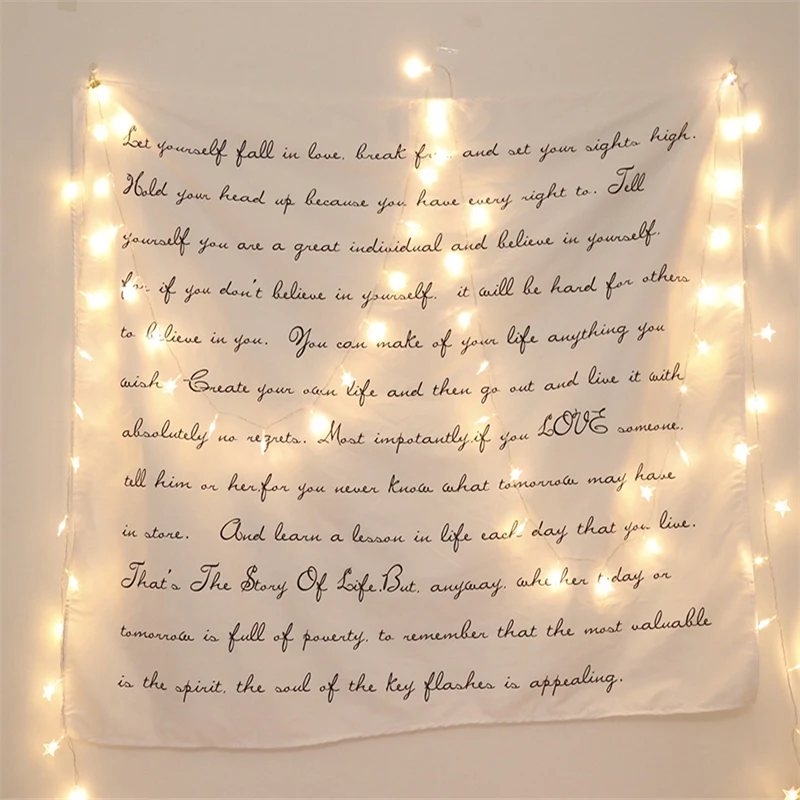 Let yourself fall in love. break and set your sights high.
Hold your head up because you have every right to. Tell
yourself you are a great individual and believe in yourself.
for if you don't believe in yourself. it will be hard for others
to believe in you. You can make of your life anything you
wish Create your own life and then go out and live it with
absolutely no regrets. Most impotantly,if you LOVE someone.
tell him or her,for you never know what tomorrow may have
in store. And learn a lesson in life each day that you live.
That's The Story Of Life.But. anyway. whether today or
tomorrow is full of poverty. to remember that the most valuable
is the spirit. the soul of the key flashes is appealing.